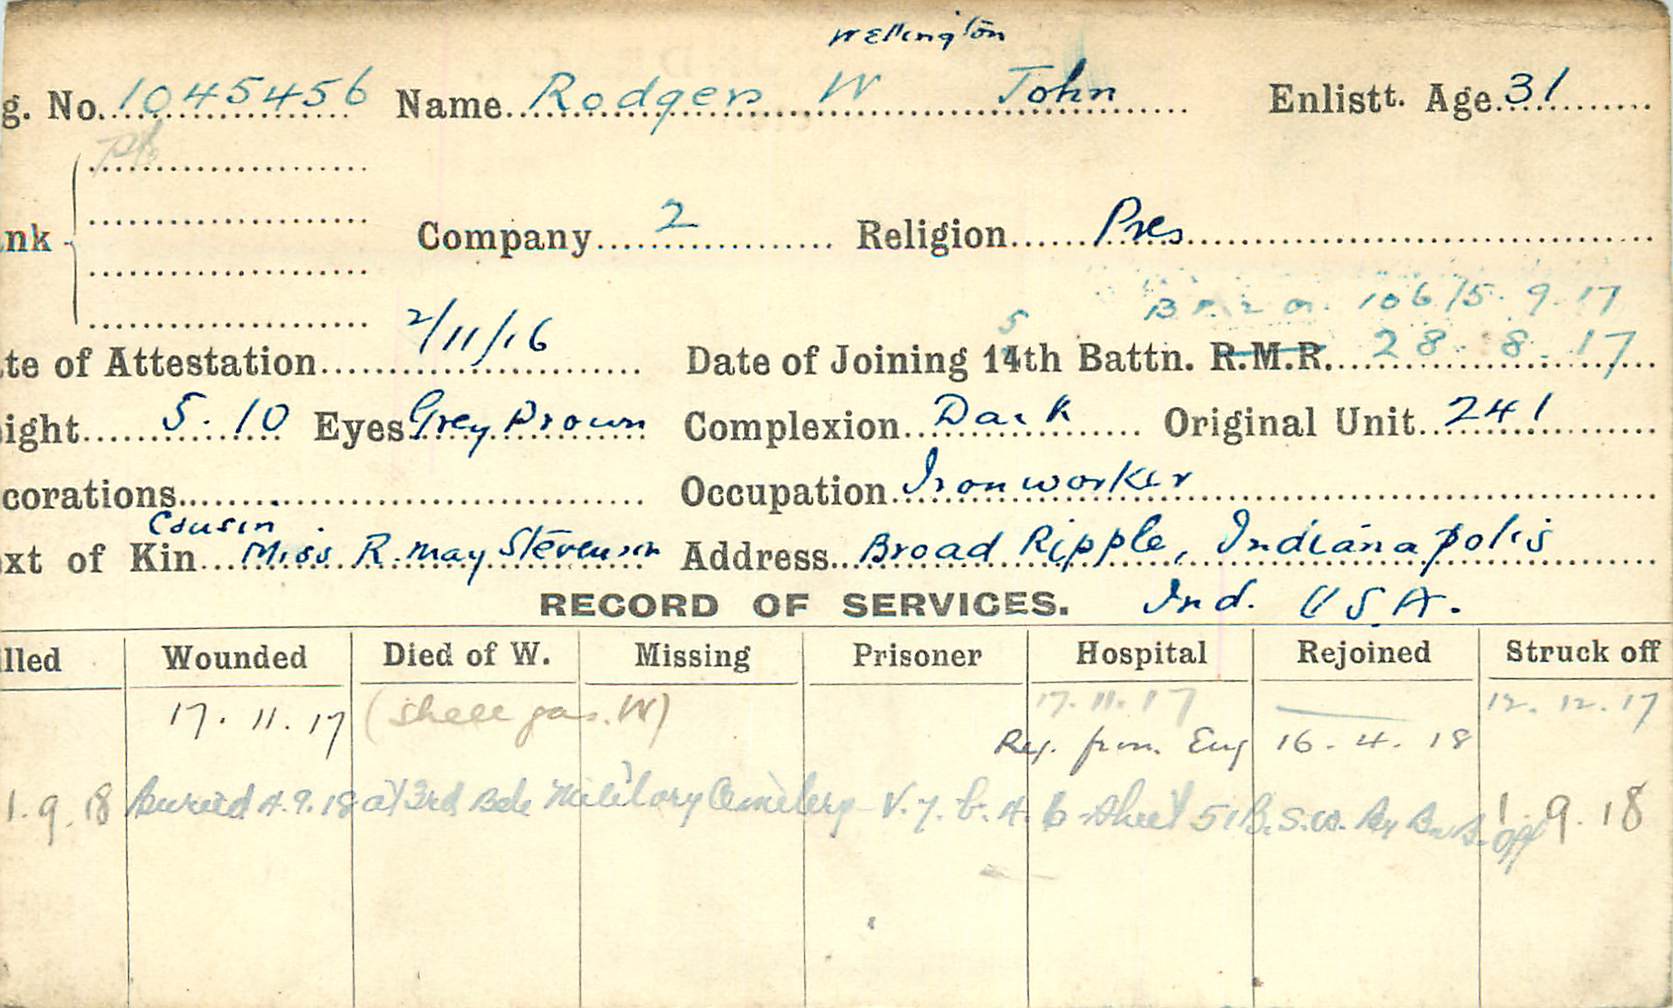 Wellington
g. No. 1045456 Name Rodgers W John Enlistt. Age 31
Pte
nk Company 2 Religion Pres
106/5.9.17
2/11/16 5 28.8.17
te of Attestation Date of Joining 14th Battn. R.M.R.
ight 5.10 Eyes Grey Brown Complexion Dark Original Unit 241
corations Occupation Ironworker
Cousin
xt of Kin Miss R. May Stevenson Address Broad Ripple, Indianapolis
RECORD OF SERVICES. Ind. U.S.A.
lled Wounded Died of W. Missing Prisoner Hospital Rejoined Struck off
17.11.17 (Shell gas. W) 17.11.17 12.12.17
Rej. from Eng 16.4.18
1.9.18 Buried 4.9.18 at 3rd Bde Military Cemetery V.7.b.4.6 Sheet 51B. S.W. 1.9.18